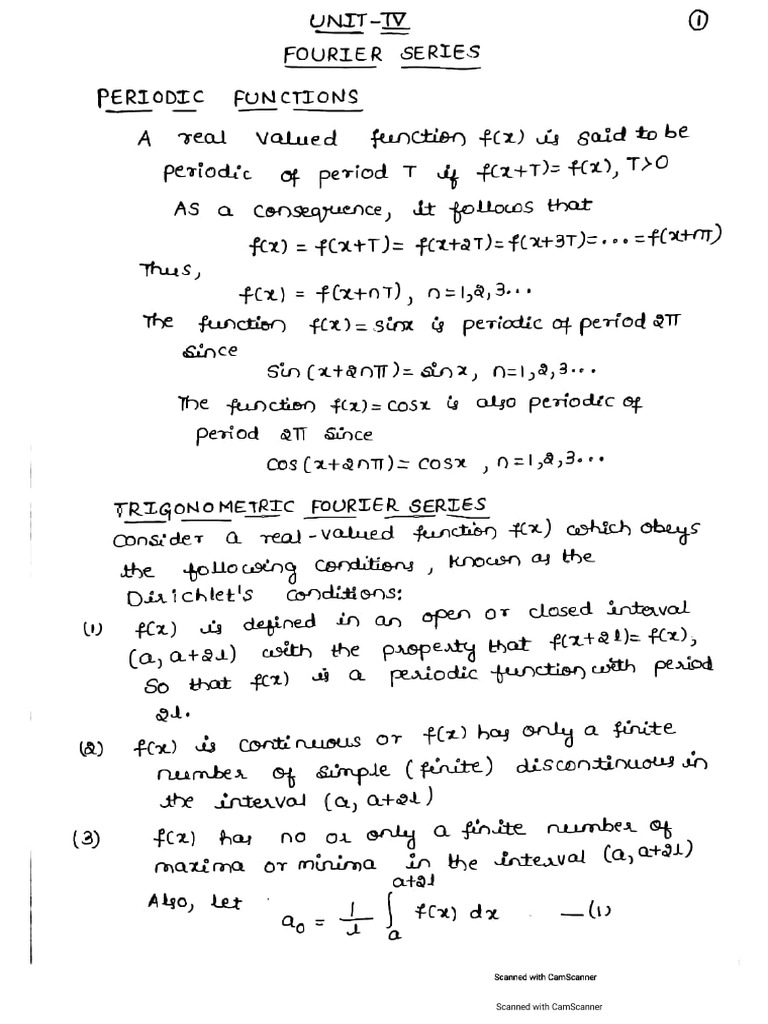 UNIT-IV
①
FOURIER SERIES
PERIODIC FUNCTIONS
A real valued function f(x) is said to be
periodic of period T if f(x+T)= f(x), T>0
As a consequence, it follows that
f(x) = f(x+T)= f(x+2T)=f(x+3T)=...=f(x+nT)
Thus,
f(x) = f(x+nT), n=1,2,3...
The function f(x)=sinx is periodic of period 2π
since
sin(x+2nπ)= sinx, n=1,2,3...
The function f(x)=cosx is also periodic of
period 2π since
cos(x+2nπ)= cosx, n=1,2,3...
TRIGONOMETRIC FOURIER SERIES
Consider a real-valued function f(x) which obeys
the following conditions, known as the
Dirichlet's conditions:
(1) f(x) is defined in an open or closed interval
(a, a+2l) with the property that f(x+2l)= f(x),
So that f(x) is a periodic function with period
2l.
(2) f(x) is continuous or f(x) has only a finite
number of simple (finite) discontinuous in
the interval (a, a+2l)
(3) f(x) has no or only a finite number of
maxima or minima in the interval (a, a+2l)
Also, let a₀ = 1/l ∫ₐᵃ⁺²ˡ f(x) dx —(1)
Scanned with CamScanner
Scanned with CamScanner